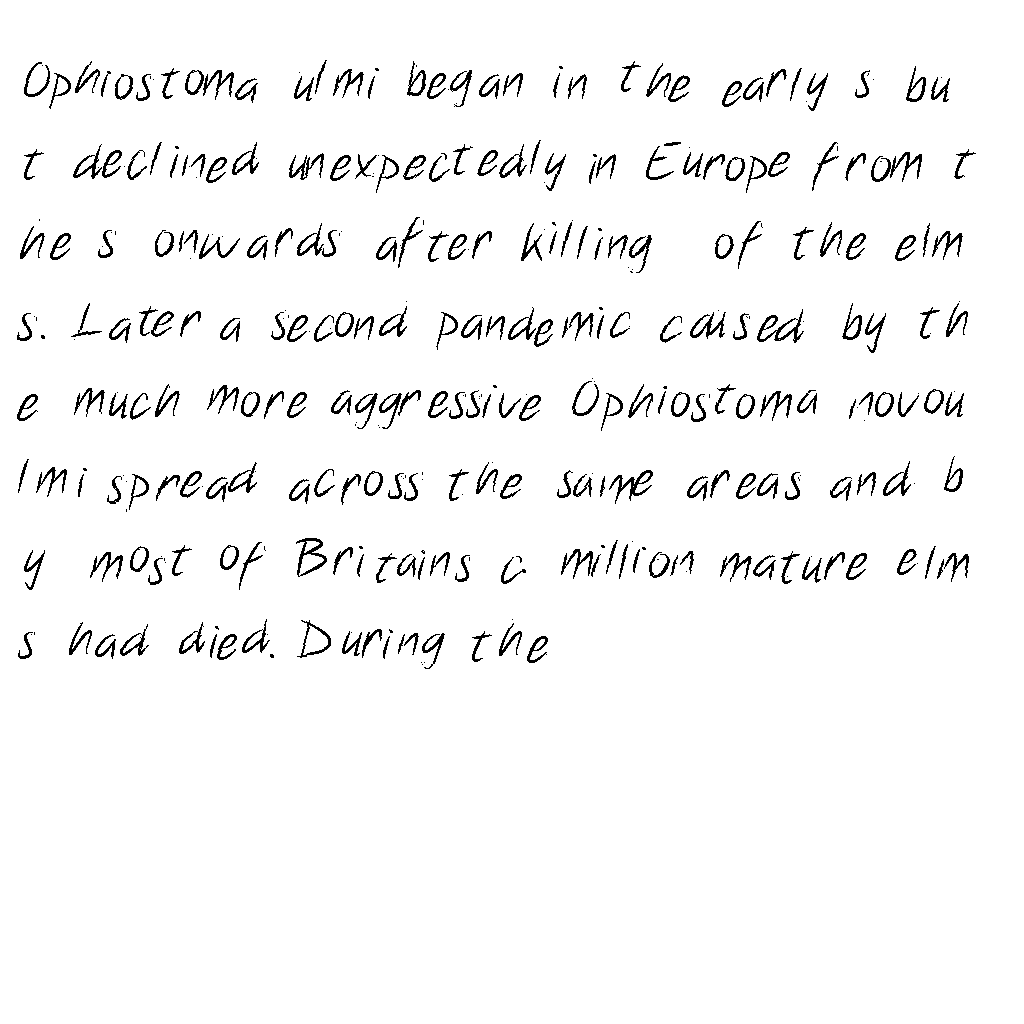 Ophiostoma ulmi began in the early s bu
t declined unexpectedly in Europe from t
he s onwards after killing of the elm
s. Later a second pandemic caused by th
e much more aggressive Ophiostoma novou
lmi spread across the same areas and b
y most of Britains c. million mature elm
s had died. During the